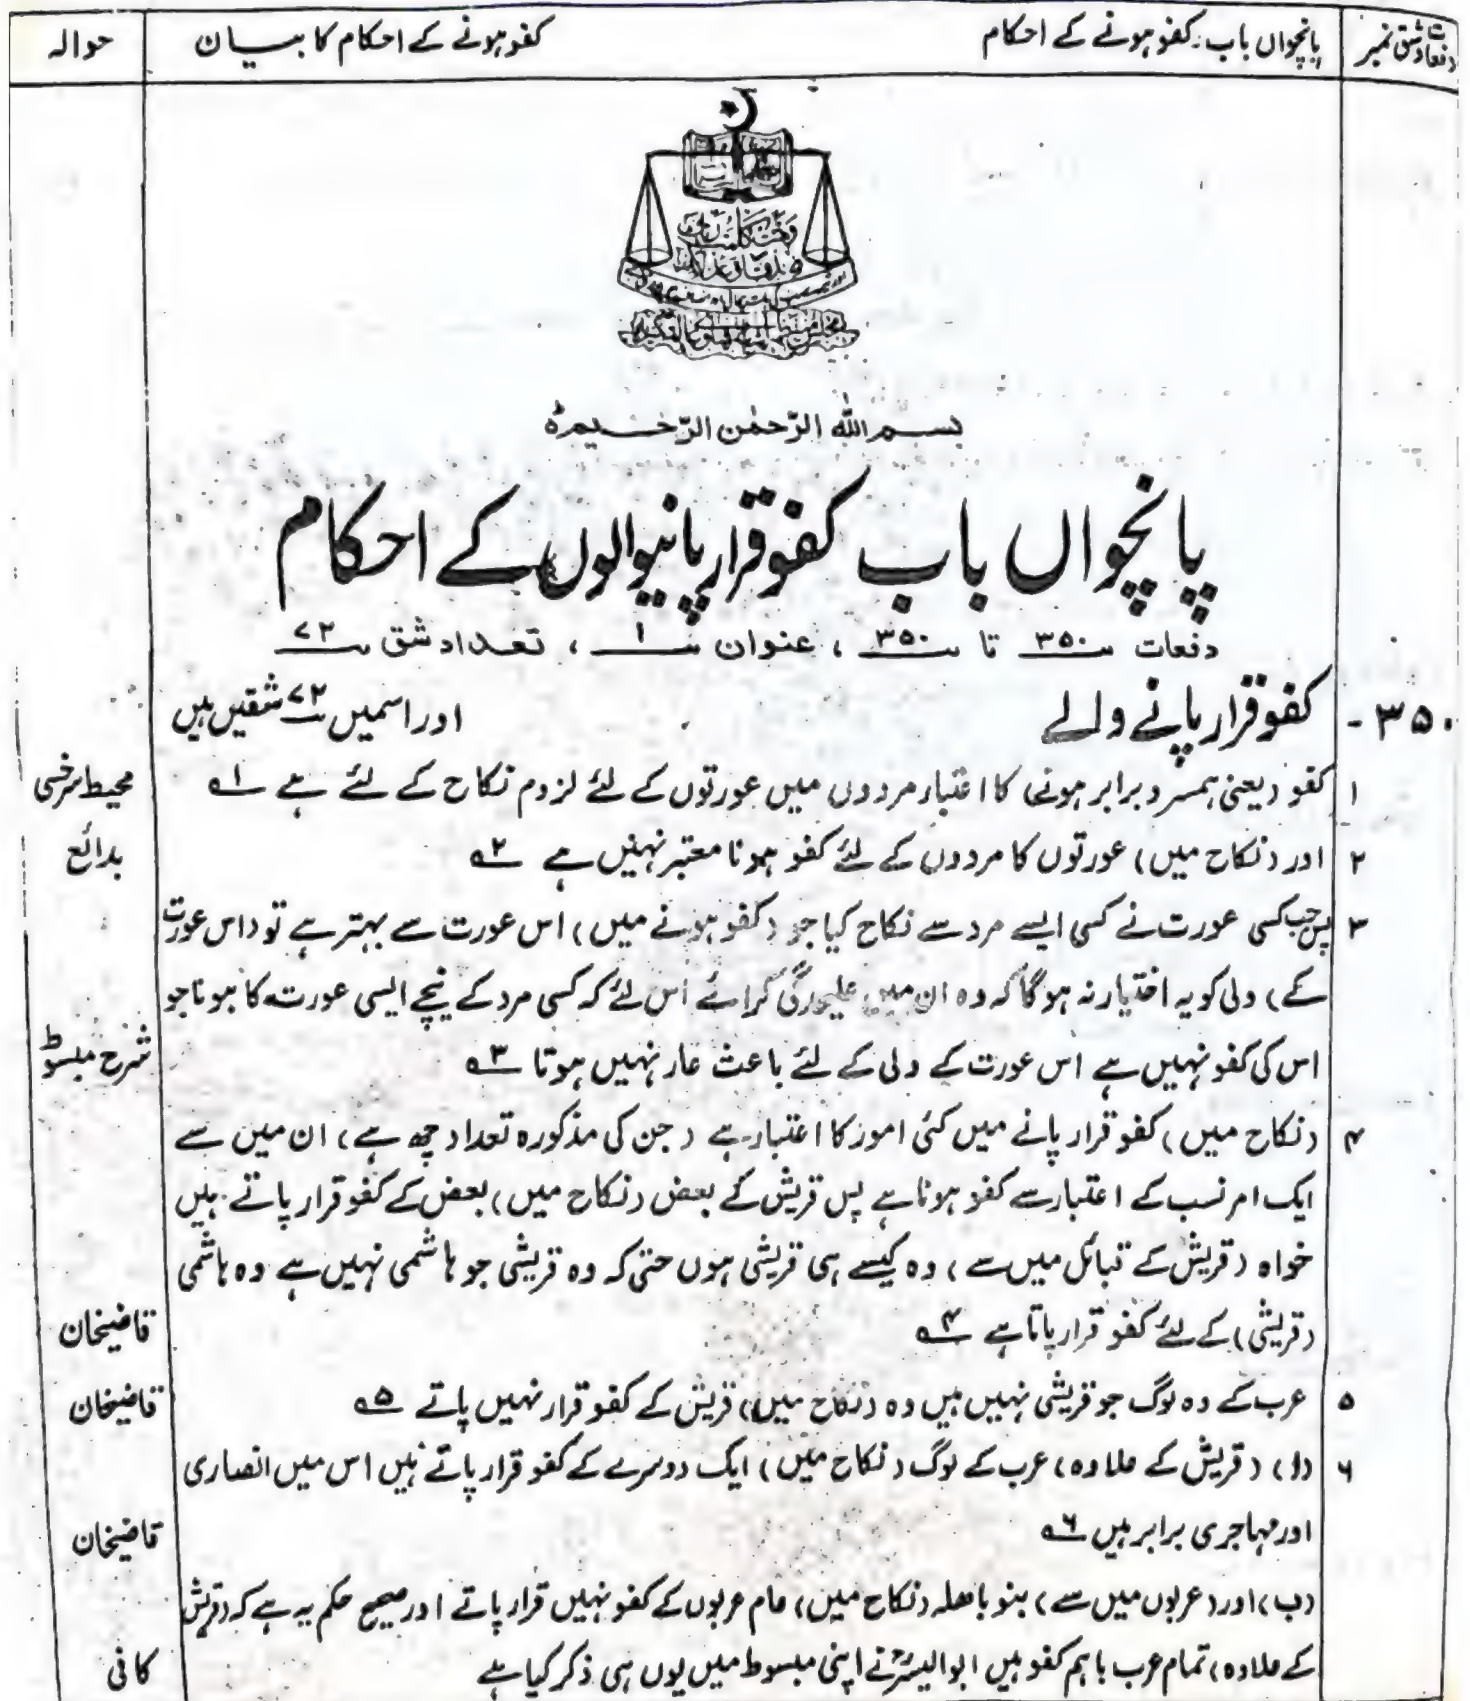 دفعات و شق نمبر پانچواں باب۔ کفو ہونے کے احکام کفو ہونے کے احکام کا بیان حوالہ
بسم اللہ الرّحمٰن الرّحیم
پانچواں باب کفو قرار پانیوالوں کے احکام
دفعات ۳۵۰ تا ۳۵۰ ، عنوان ۱ ، تعداد شق ۷۲
۳۵۰۔ کفو قرار پانے والے اور اسمیں ۷۲ شقیں ہیں
۱ کفو (یعنی ہمسر و برابر ہونے) کا اعتبار مردوں میں عورتوں کے لئے لزوم نکاح کے لئے ہے ۱ھ محیط سرخسی
۲ اور (نکاح میں) عورتوں کا مردوں کے لئے کفو ہونا معتبر نہیں ہے ۲ھ بدائع
۳ پس جب کسی عورت نے کسی ایسے مرد سے نکاح کیا جو (کفو ہونے میں) اس عورت سے بہتر ہے تو (اس عورت
کے) ولی کو یہ اختیار نہ ہوگا کہ وہ ان میں علیحدگی کرائے اس لئے کہ کسی مرد کے نیچے ایسی عورت کا ہونا جو
اس کی کفو نہیں ہے اس عورت کے ولی کے لئے باعث عار نہیں ہوتا ۳ھ شرح مبسوط
۴ (نکاح میں) کفو قرار پانے میں کئی امور کا اعتبار ہے (جن کی مذکورہ تعداد چھ ہے) ان میں سے
ایک امر نسب کے اعتبار سے کفو ہونا ہے پس قریش کے بعض (نکاح میں) بعض کے کفو قرار پاتے ہیں
خواہ (قریش کے قبائل میں سے) وہ کیسے ہی قریشی ہوں حتی کہ وہ قریشی جو ہاشمی نہیں ہے وہ ہاشمی
(قریشی) کے لئے کفو قرار پاتا ہے ۴ھ قاضیخان
۵ عرب کے وہ لوگ جو قریشی نہیں ہیں وہ (نکاح میں) قریش کے کفو قرار نہیں پاتے ۵ھ قاضیخان
۶ (ا) (قریش کے علاوہ) عرب کے لوگ (نکاح میں) ایک دوسرے کے کفو قرار پاتے ہیں اس میں انصاری
اور مہاجری برابر ہیں ۶ھ قاضیخان
(ب) اور (عربوں میں سے) بنو باھلہ (نکاح میں) عام عربوں کے کفو نہیں قرار پاتے اور صحیح حکم یہ ہے کہ (قریش
کے علاوہ) تمام عرب باہم کفو ہیں ابوالیسرؒ نے اپنی مبسوط میں یوں ہی ذکر کیا ہے کافی